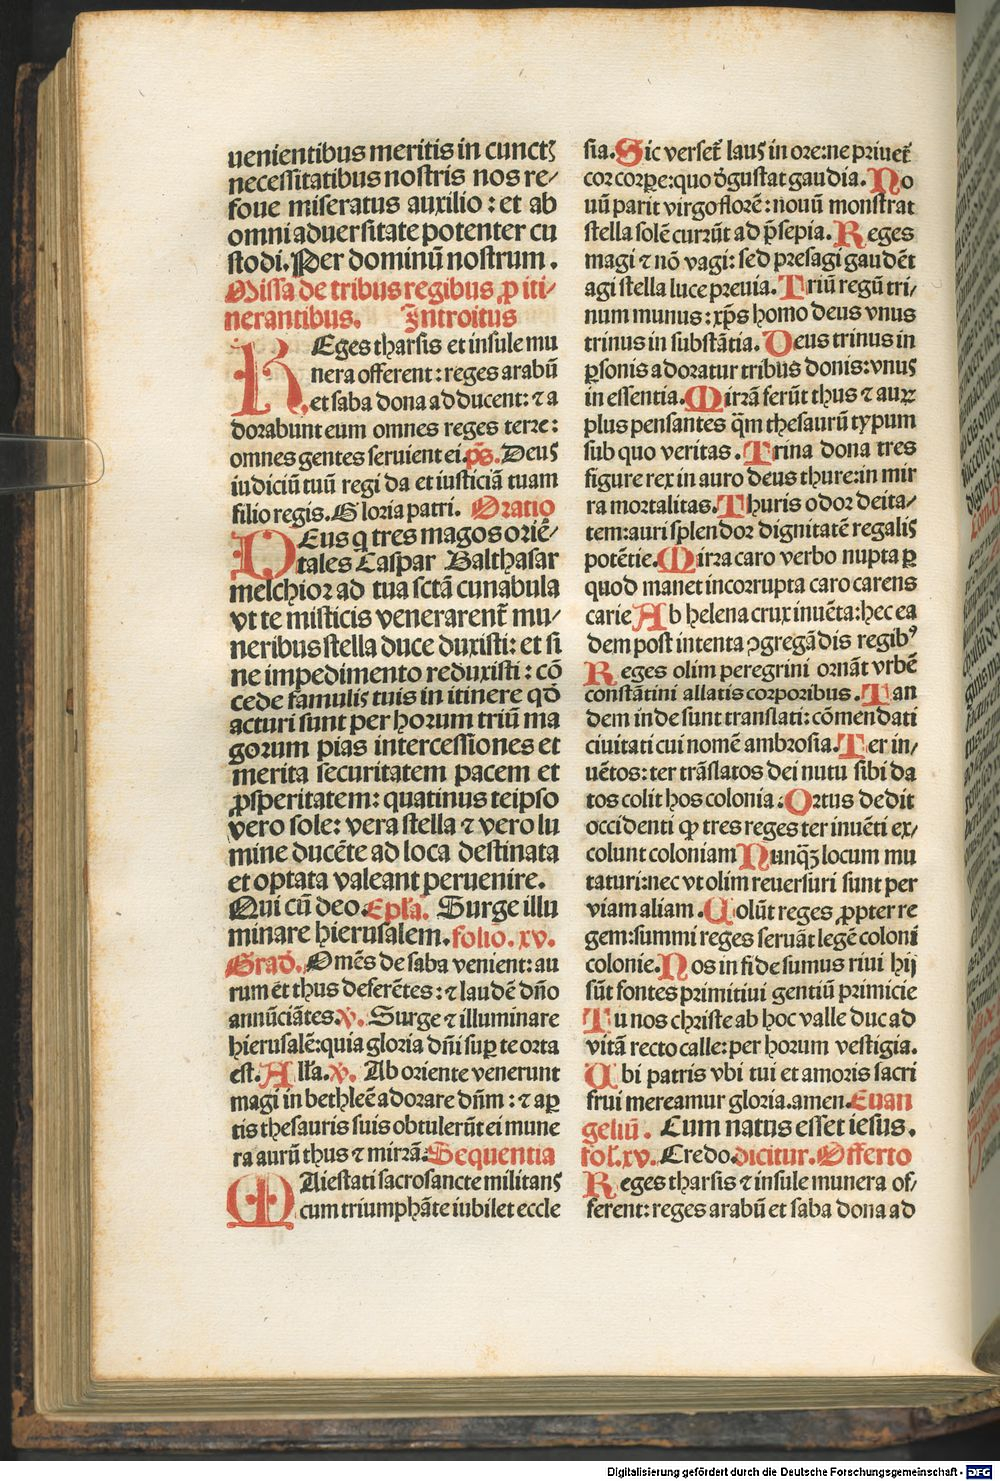 uenientibus meritis in cunctꝫ
necessitatibus nostris nos re⸗
foue miseratus auxilio : et ab
omni aduersitate potenter cu
stodi. Per dominū nostrum .
Missa de tribus regibus ꝓ iti⸗
nerantibus. Introitus
REges tharsis et insule mu
nera offerent : reges arabū
et saba dona adducent: ⁊ a
dorabunt eum omnes reges terre :
omnes gentes seruient ei. p̄s. Deus
iudiciū tuū regi da et iusticiā tuam
filio regis. Gloria patri. Oratio
DEus q̄ tres magos oriē⸗
tales Caspar Balthasar
melchior ad tua sctā cunabula
vt te misticis venerarent̄ mu⸗
neribus stella duce duxisti: et si
ne impedimento reduxisti : cō
cede famulis tuis in itinere qd̄
acturi sunt per horum triū ma
gorum pias intercessiones et
merita securitatem pacem et
ꝓsperitatem: quatinus teipso
vero sole: vera stella ⁊ vero lu
mine ducēte ad loca destinata
et optata valeant peruenire.
Qui cū deo. Epl̄a. Surge illu
minare hierusalem. folio. xv.
Grad̄. Omēs de saba venient: au
rum et thus deferētes: ⁊ laudē dn̄o
annūciātes. v. Surge ⁊ illuminare
hierusalē: quia gloria dn̄i suꝑ te orta
est. All̄a. v. Ab oriente venerunt
magi in bethleē adorare dn̄m : ⁊ aꝑ
tis thesauris suis obtulerūt ei mune
ra aurū thus ⁊ mirrā: Sequentia
MAiestati sacrosancte militans
cum triumphāte iubilet eccle
sia. Sic verset̄ laus in ore: ne priuet̄
cor corꝑe: quo d̄gustat gaudia. No
uū parit virgo florē : nouū monstrat
stella solē currūt ad p̄sepia. Reges
magi ⁊ nō vagi: sed presagi gaudēt
agi stella luce preuia. Triū regū tri⸗
num munus : xp̄s homo deus vnus
trinus in substātia. Deus trinus in
ꝑsonis adoratur tribus donis: vnus
in essentia. Mirrā ferūt thus ⁊ auꝝ
plus pensantes q̄m thesaurū typum
sub quo veritas . Trina dona tres
figure rex in auro deus thure: in mir
ra mortalitas. Thuris odor deita⸗
tem: auri splendor dignitatē regalis
potētie. Mirra caro verbo nupta ꝑ
quod manet incorrupta caro carens
carie Ab helena crux inuēta: hec ea
dem post intenta ꝯgregādis regibꝰ
Reges olim peregrini ornāt vrbē
constātini allatis corporibus . Tan
dem inde sunt translati: cōmendati
ciuitati cui nomē ambrosia. Ter in⸗
uētos: ter trāslatos dei nutu sibi da
tos colit hos colonia . Ortus dedit
occidenti ꝙ tres reges ter inuēti ex⸗
colunt coloniam Nunq̄ꝫ locum mu
taturi: nec vt olim reuersuri sunt per
viam aliam . Colūt reges ꝓpter re
gem: summi reges seruāt legē coloni
colonie. Nos in fide sumus riui hij
sūt fontes primitiui gentiū primicie
Tu nos christe ab hoc valle duc ad
vitā recto calle: per horum vestigia.
Ubi patris vbi tui et amoris sacri
frui mereamur gloria. amen. Euan
geliū. Cum natus esset iesus.
fol̄. xv. Credo. dicitur. Offerto
Reges tharsis ⁊ insule munera of⸗
ferent: reges arabū et saba dona ad
Digitalisierung gefördert durch die Deutsche Forschungsgemeinschaft - DFG